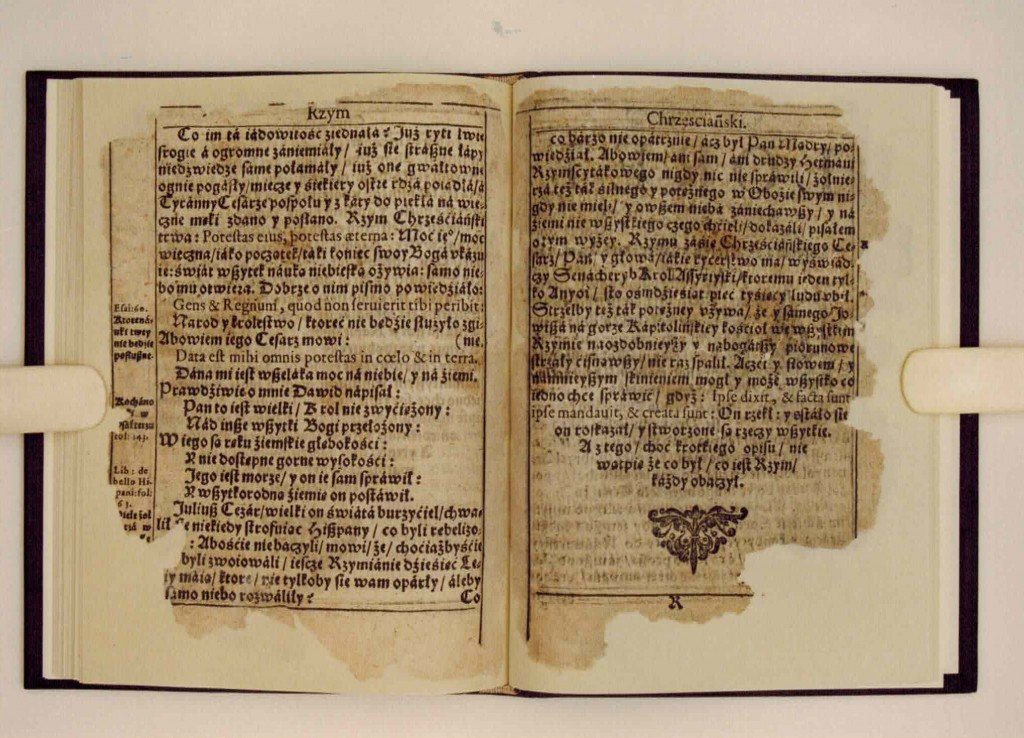 Rzym
Co im tá iádowitość ziednáłá? Już ryki lwie
srogie á ogromne zániemiáły/ iuż sie stráßne łápy
niedzwiedze sáme połamáły/ iuż one gwałtowne
ognie pogásły/ miecze y siekiery ostre rdzá poiádłá/ á
Tyránny Cesárze pospołu y z káty do piekłá ná wie-
czne męki zdano y posłano. Rzym Chrześciáński
trwa: Potestas eius, potestas æterna: Moc ie°/ moc
wieczna/ iáko początek/ táki koniec swoy Bogá vkázu
ie: świát wßytek náuką niebieską ożywia: sámo nie-
bo mu otwiera. Dobrze o nim pismo powiedziáło:
Gens & Regnum, quod non seruierit tibi peribit:
Narod y krolestwo/ ktoreć nie będzie służyło zgi-
Abowiem iego Cesarz mowi: (nie.
Data est mihi omnis potestas in cœlo & in terra.
Dána mi iest wßeláka moc ná niebie/ y ná źiemi.
Prawdźiwie o mnie Dawid nápisał:
Pan to iest wielki/ Krol nie zwyćiężony:
Nád inße wßytki Bogi przełożony:
W iego są ręku źiemskie głębokośći:
Y nie dostępne gorne wysokośći:
Jego iest morze/ y on ie sam spráwił:
Y wßytkorodną źiemię on postáwił.
Juliuß Cezár/ wielki on świátá burzyćiel/ chwa-
lił niekiedy strofuiąc Hißpany/ co byli rebelizo-
: Abośćie nie baczyli/ mowi/ że/ choćiażbyśćie
byli zwoiowáli/ ieszcze Rzymiánie dźieśięć Le-
máią/ ktore/ nie tylkoby sie wam opárły/ áleby
sámo niebo rozwáliły? Co
Esai: 60.
Ktorená-
nie będzie
posłußne.
Kochano
y w
fol: 143.
Lib: de
bello Hi-
pani: fol:
63.
Chrześciański.
co bárzo nie opátrznie/ acz był Pan Mądry/ po-
wiedźiał. Abowiem/ áni sam/ áni drudzy Hetmani
Rzymscy tákowego nigdy nic nie spráwili/ żołnie-
rzá też ták śilnego y potężnego w Oboźie swym ni-
gdy nie mieli/ y owßem niebá zániechawßy/ y ná
źiemi nie wßystkiego czego chćieli/ dokazáli/ pisałem
o tym wyżey. Rzymu záśię Chrześćiáńskiego Ce-
sarz/ Pan/ y głowá/ tákie rycerstwo ma/ wyświad-
czy Senácheryb Krol Assyriyski/ ktoremu ieden tyl-
ko Anyoł/ sto osmdźieśiąt pięć tyśięcy ludu vbił.
Strzelby też ták potężney vżywa/ że y sámego Jo-
wißá ná gorze Kápitolińskiey kośćioł we wßystkim
Rzymie naozdobnieyßy y nabogátßy piorunowe
strzały ćisnąwßy/ nie raz spalił. Aczći y słowem/ y
namnieyßym skinieniem mogł y może wßystko co
iedno chce spráwić/ gdyż: Ipse dixit, & facta sunt
ipse mandauit, & creata sunt: On rzekł: y ostáło sie
on roskazał/ y stworzone są rzeczy wßytkie.
A z tego/ choć krotkiego opisu/ nie
wątpię że co był/ co iest Rzym/
káżdy obaczył.